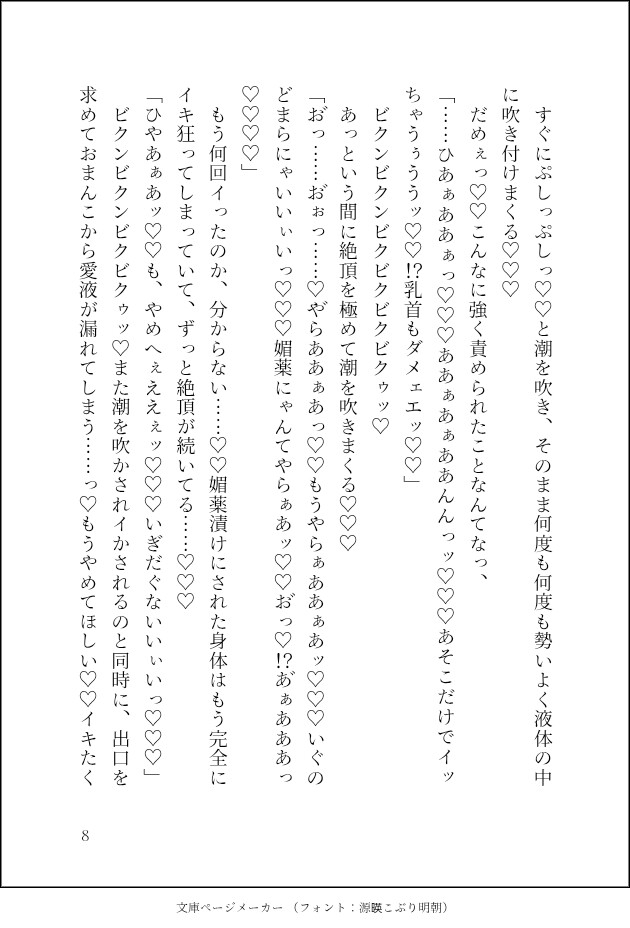 すぐにぷしっぷしっ♡♡と潮を吹き、そのまま何度も何度も勢いよく液体の中
に吹き付けまくる♡♡♡
だめぇっ♡♡こんなに強く責められたことなんてなっ、
「……ひあぁああぁっ♡♡♡ああぁあぁああんんっッ♡♡♡あそこだけでイッ
ちゃうぅううッ♡♡!?乳首もダメェエッ♡♡」
ビクンビクンビクビクビクビクゥッ♡
あっという間に絶頂を極めて潮を吹きまくる♡♡♡
「お゛っ……お゛ぉっ……♡や゛らああぁあっ♡♡もうやらぁああぁあッ♡♡♡いぐの
どまらにゃいいぃいっ♡♡♡媚薬にゃんてやらぁあッ♡♡お゛っ♡!?あ゛ぁあああっ
♡♡♡♡」
もう何回イったのか、分からない……♡♡媚薬漬けにされた身体はもう完全に
イキ狂ってしまっていて、ずっと絶頂が続いてる……♡♡♡
「ひやあぁあッ♡♡も、やめへぇええぇッ♡♡♡いぎだぐないいぃいっ♡♡♡」
ビクンビクンビクビクゥッ♡また潮を吹かされイかされるのと同時に、出口を
求めておまんこから愛液が漏れてしまう……っ♡もうやめてほしい♡♡イキたく
8
文庫ページメーカー（フォント：源暎こぶり明朝）